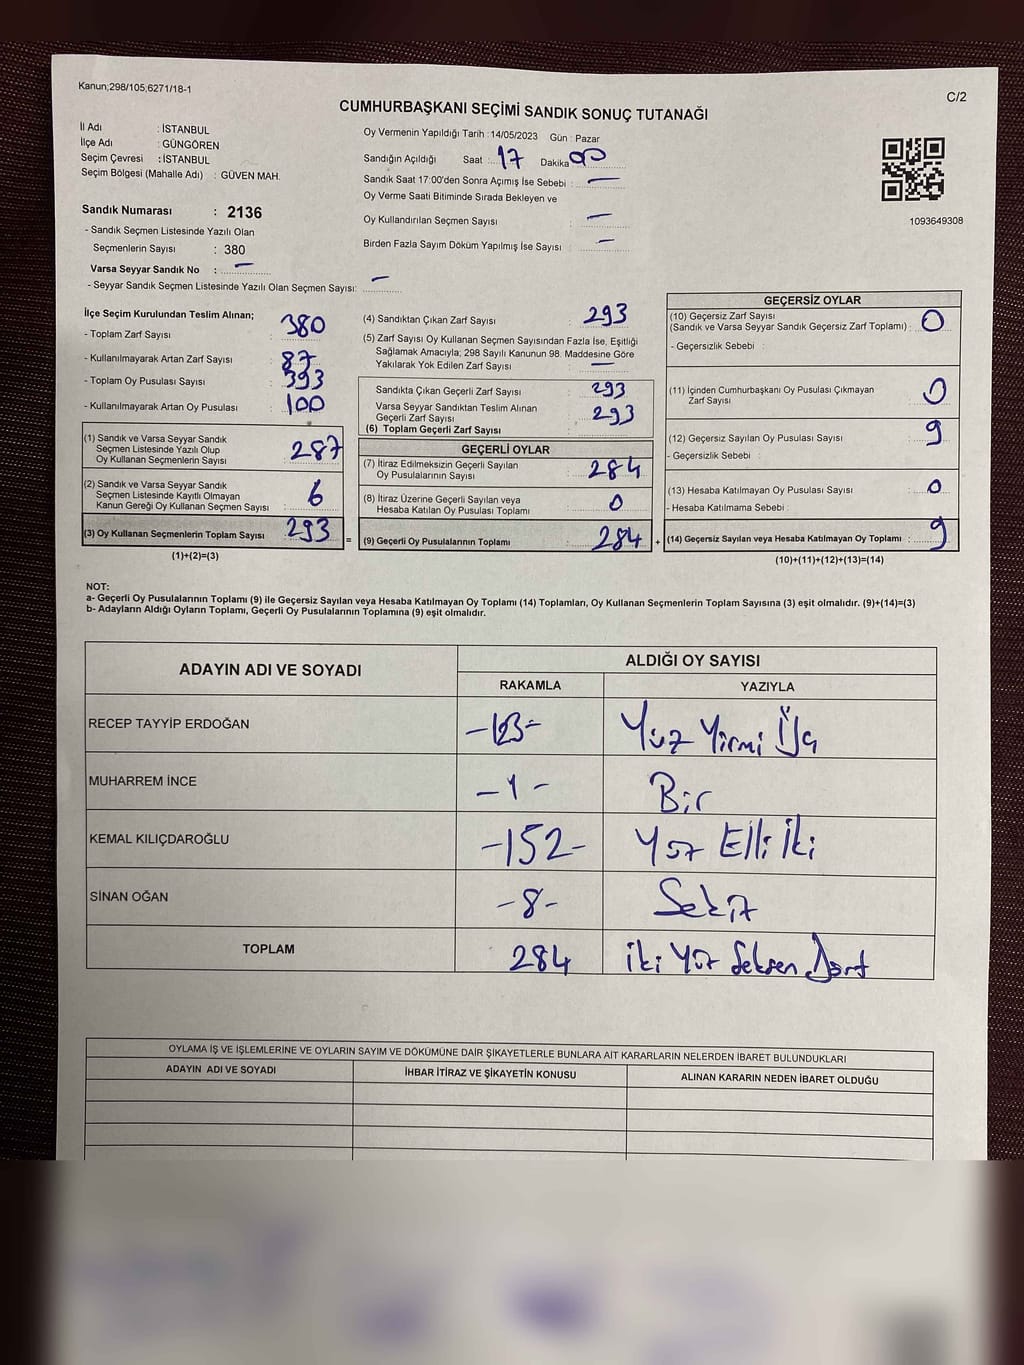 Kanun;298/105;6271/18-1
C/2
CUMHURBAŞKANI SEÇİMİ SANDIK SONUÇ TUTANAĞI
İl Adı : İSTANBUL
İlçe Adı : GÜNGÖREN
Seçim Çevresi : İSTANBUL
Seçim Bölgesi (Mahalle Adı) : GÜVEN MAH.
Sandık Numarası : 2136
- Sandık Seçmen Listesinde Yazılı Olan
Seçmenlerin Sayısı : 380
Varsa Seyyar Sandık No : —
- Seyyar Sandık Seçmen Listesinde Yazılı Olan Seçmen Sayısı: —
Oy Vermenin Yapıldığı Tarih : 14/05/2023 Gün : Pazar
Sandığın Açıldığı Saat : 17 Dakika 00
Sandık Saat 17:00'den Sonra Açımış İse Sebebi : —
Oy Verme Saati Bitiminde Sırada Bekleyen ve
Oy Kullandırılan Seçmen Sayısı : —
Birden Fazla Sayım Döküm Yapılmış İse Sayısı : —
1093649308
İlçe Seçim Kurulundan Teslim Alınan;
- Toplam Zarf Sayısı : 380
- Kullanılmayarak Artan Zarf Sayısı : 87
- Toplam Oy Pusulası Sayısı : 393
- Kullanılmayarak Artan Oy Pusulası : 100
(1) Sandık ve Varsa Seyyar Sandık
Seçmen Listesinde Yazılı Olup
Oy Kullanan Seçmenlerin Sayısı : 287
(2) Sandık ve Varsa Seyyar Sandık
Seçmen Listesinde Kayıtlı Olmayan
Kanun Gereği Oy Kullanan Seçmen Sayısı : 6
(3) Oy Kullanan Seçmenlerin Toplam Sayısı : 293
(1)+(2)=(3)
=
(4) Sandıktan Çıkan Zarf Sayısı : 293
(5) Zarf Sayısı Oy Kullanan Seçmen Sayısından Fazla İse, Eşitliği
Sağlamak Amacıyla; 298 Sayılı Kanunun 98. Maddesine Göre
Yakılarak Yok Edilen Zarf Sayısı : —
Sandıkta Çıkan Geçerli Zarf Sayısı : 293
Varsa Seyyar Sandıktan Teslim Alınan
Geçerli Zarf Sayısı : 293
(6) Toplam Geçerli Zarf Sayısı :
GEÇERLİ OYLAR
(7) İtiraz Edilmeksizin Geçerli Sayılan
Oy Pusulalarının Sayısı : 284
(8) İtiraz Üzerine Geçerli Sayılan veya
Hesaba Katılan Oy Pusulası Toplamı : 0
(9) Geçerli Oy Pusulalarının Toplamı : 284
+
GEÇERSİZ OYLAR
(10) Geçersiz Zarf Sayısı
(Sandık ve Varsa Seyyar Sandık Geçersiz Zarf Toplamı) : 0
- Geçersizlik Sebebi :
(11) İçinden Cumhurbaşkanı Oy Pusulası Çıkmayan
Zarf Sayısı : 0
(12) Geçersiz Sayılan Oy Pusulası Sayısı : 9
- Geçersizlik Sebebi :
(13) Hesaba Katılmayan Oy Pusulası Sayısı : 0
- Hesaba Katılmama Sebebi :
(14) Geçersiz Sayılan veya Hesaba Katılmayan Oy Toplamı : 9
(10)+(11)+(12)+(13)=(14)
NOT:
a- Geçerli Oy Pusulalarının Toplamı (9) ile Geçersiz Sayılan veya Hesaba Katılmayan Oy Toplamı (14) Toplamları, Oy Kullanan Seçmenlerin Toplam Sayısına (3) eşit olmalıdır. (9)+(14)=(3)
b- Adayların Aldığı Oyların Toplamı, Geçerli Oy Pusulalarının Toplamına (9) eşit olmalıdır.
ADAYIN ADI VE SOYADI
ALDIĞI OY SAYISI
RAKAMLA YAZIYLA
RECEP TAYYİP ERDOĞAN -123- Yüz Yirmi Üç
MUHARREM İNCE -1- Bir
KEMAL KILIÇDAROĞLU -152- Yüz Elli İki
SİNAN OĞAN -8- Sekiz
TOPLAM 284 İki Yüz Seksen Dört
OYLAMA İŞ VE İŞLEMLERİNE VE OYLARIN SAYIM VE DÖKÜMÜNE DAİR ŞİKAYETLERLE BUNLARA AİT KARARLARIN NELERDEN İBARET BULUNDUKLARI
ADAYIN ADI VE SOYADI İHBAR İTİRAZ VE ŞİKAYETİN KONUSU ALINAN KARARIN NEDEN İBARET OLDUĞU